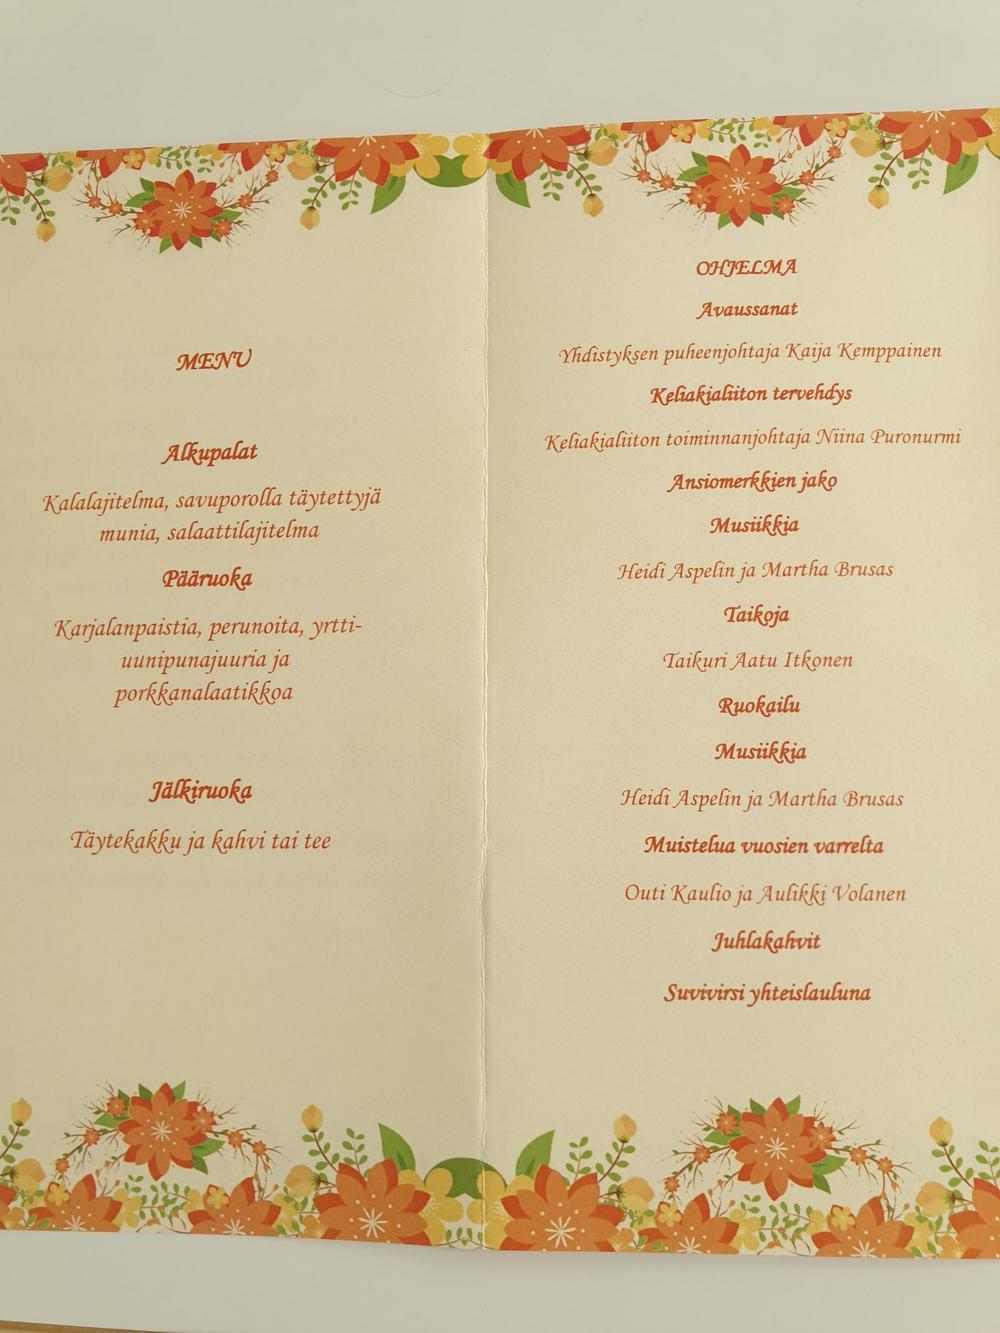 MENU
Alkupalat
Kalalajitelma, savuporolla täytettyjä
munia, salaattilajitelma
Pääruoka
Karjalanpaistia, perunoita, yrtti-
uunipunajuuria ja
porkkanalaatikkoa
Jälkiruoka
Täytekakku ja kahvi tai tee
OHJELMA
Avaussanat
Yhdistyksen puheenjohtaja Kaija Kemppainen
Keliakialiiton tervehdys
Keliakialiiton toiminnanjohtaja Niina Puronurmi
Ansiomerkkien jako
Musiikkia
Heidi Aspelin ja Martha Brusas
Taikoja
Taikuri Aatu Itkonen
Ruokailu
Musiikkia
Heidi Aspelin ja Martha Brusas
Muistelua vuosien varrelta
Outi Kaulio ja Aulikki Volanen
Juhlakahvit
Suvivirsi yhteislauluna